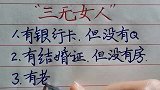 “三无女人”
1.有银行卡.但没有Q
2.有结婚证.但没有房.
3.有老